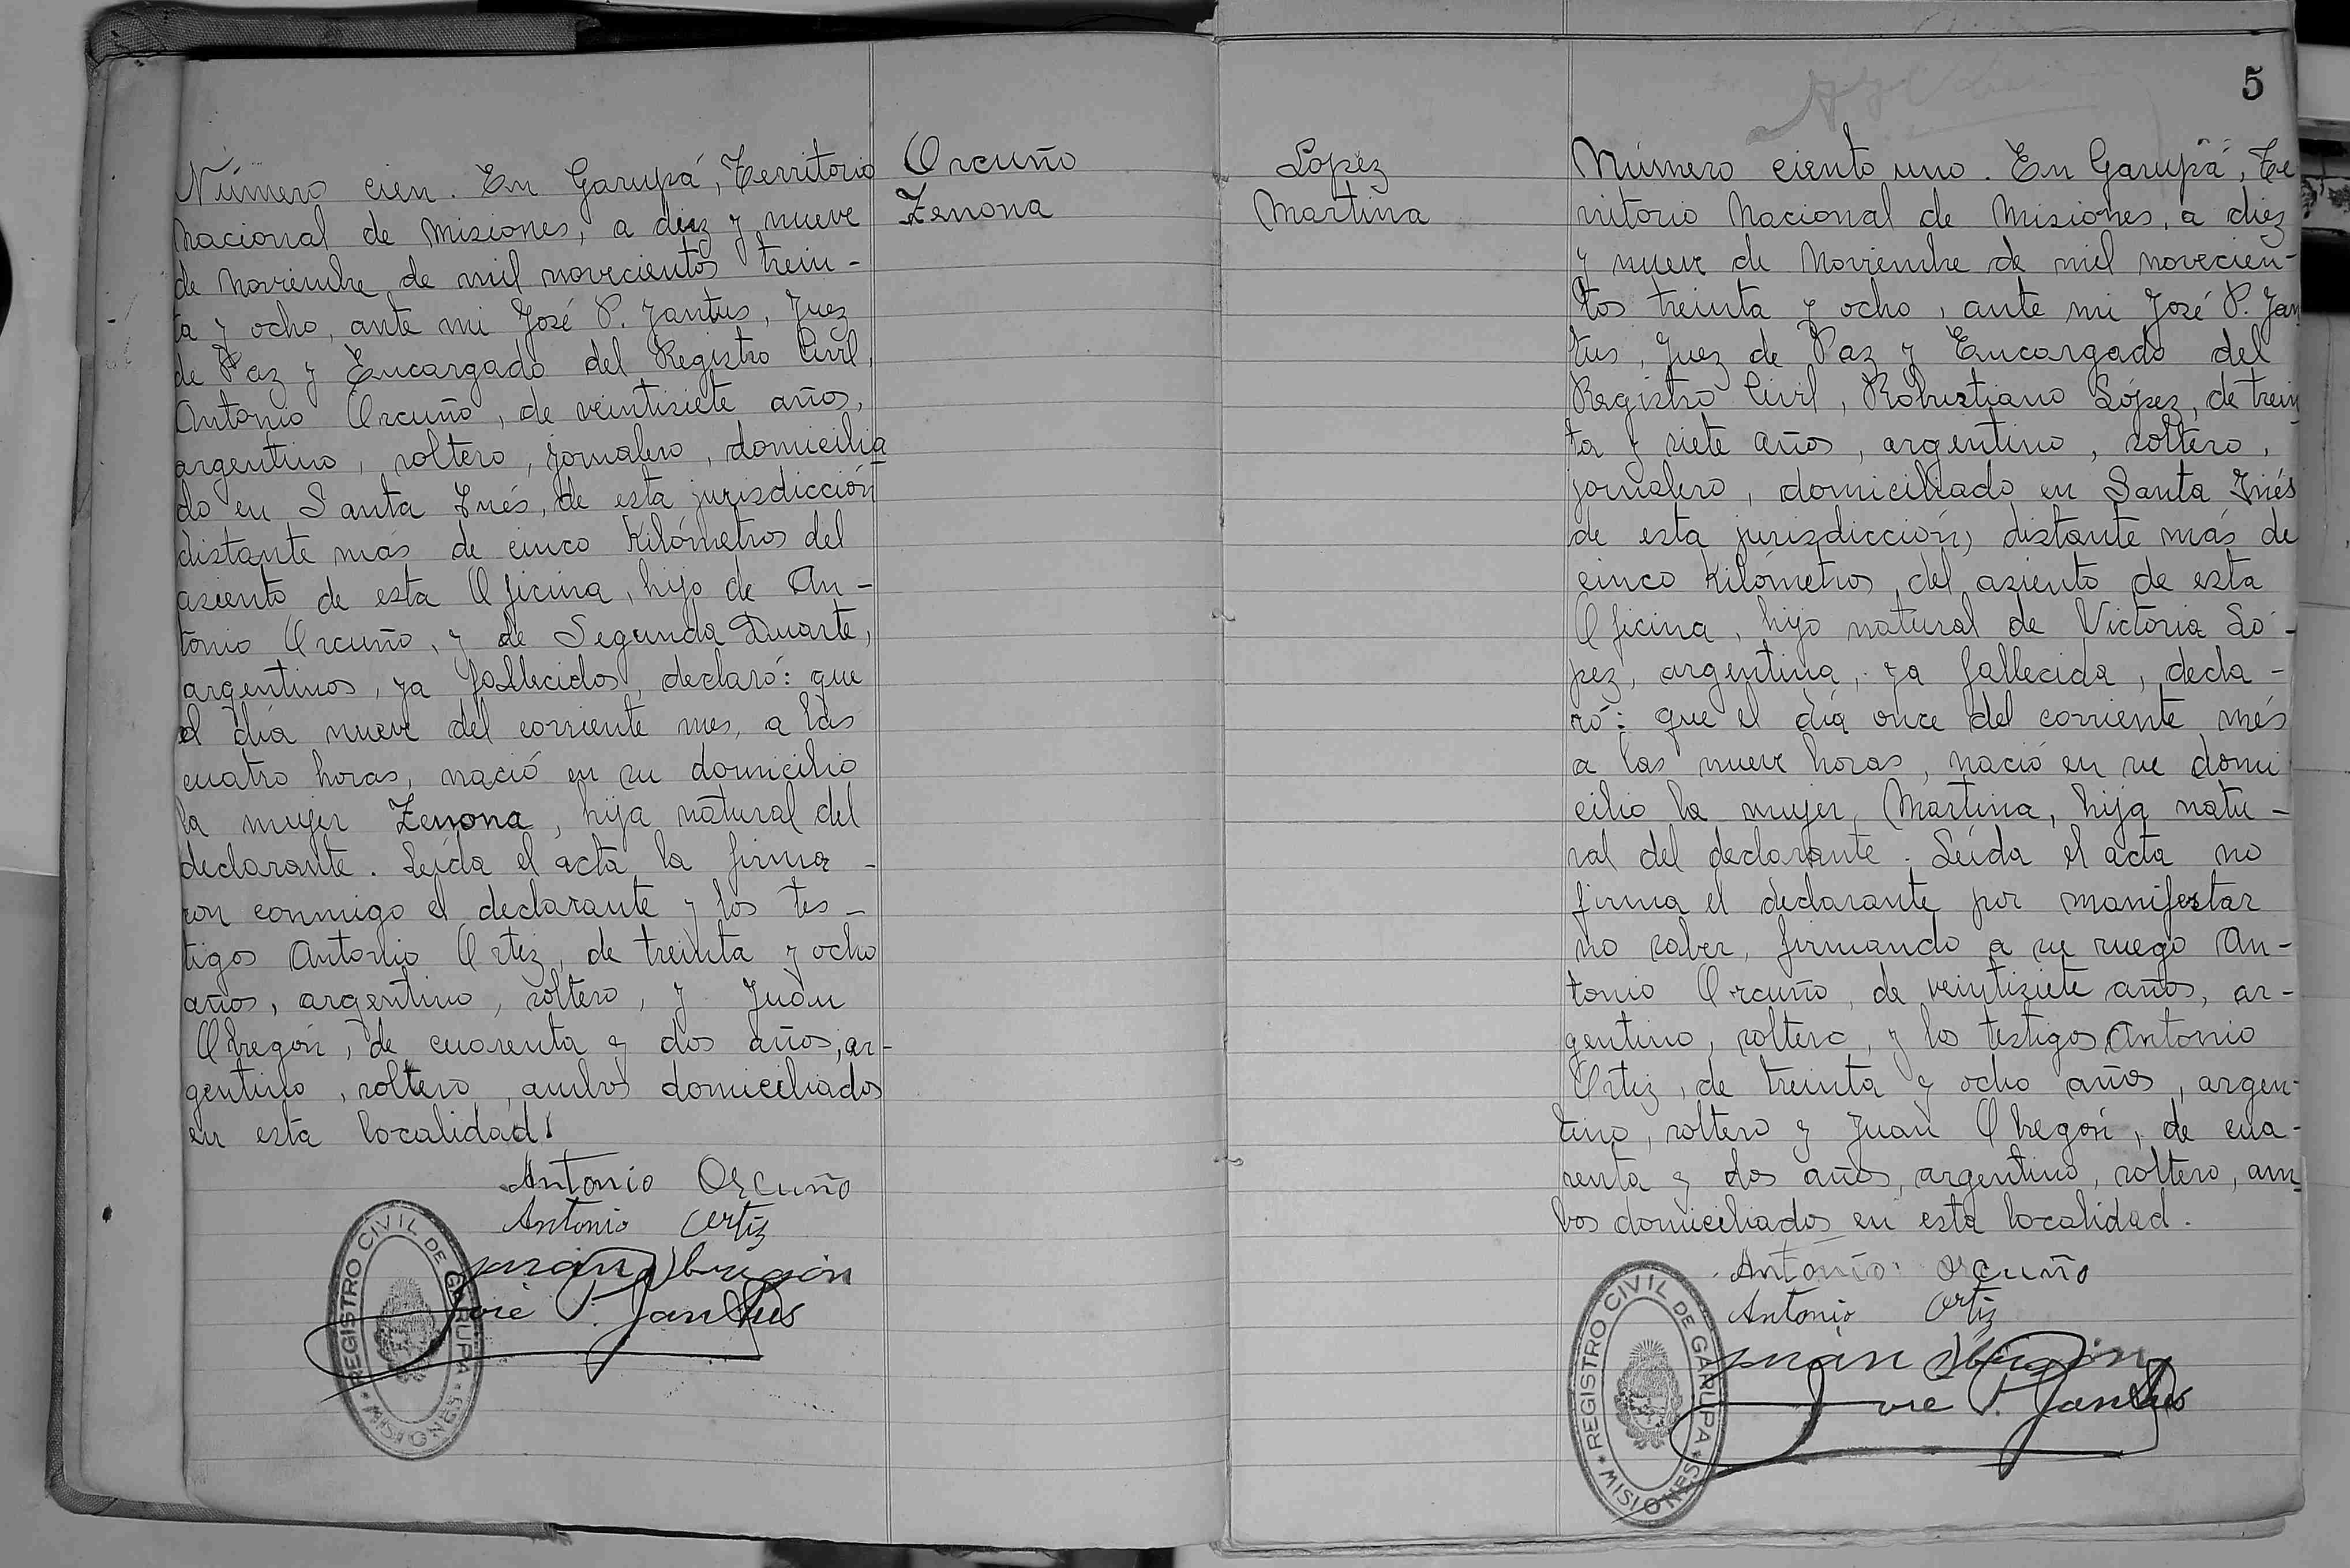 Número cien. En Garupá, Territorio
Nacional de Misiones, a diez y nueve
de Noviembre de mil novecientos trein-
ta y ocho, ante mi José P. Jantus, Juez
de Paz y Encargado del Registro Civil,
Antonio Orcuño, de veintisiete años,
argentino, soltero, jornalero, domicilia
do en Santa Inés, de esta jurisdicción
distante más de cinco Kilómetros del
asiento de esta Oficina, hijo de An-
tonio Orcuño, y de Segunda Duarte,
argentinos, ya fallecidos, declaró: que
el día nueve del corriente mes, a las
cuatro horas, nació en su domicilio
la mujer Zenona, hija natural del
declarante. Leída el acta la firma-
ron conmigo el declarante y los tes-
tigos Antonio Ortiz, de treinta y ocho
años, argentino, soltero, y Juan
Obregón, de cuarenta y dos años, ar-
gentino, soltero, ambos domiciliados
en esta localidad.
Antonio Orcuño
Antonio Ortiz
Juan Obregón
José P. Jantus
REGISTRO CIVIL DE GARUPA
MISIONES
Orcuño
Zenona
Lopez
Martina
5
Número ciento uno. En Garupá, Te
rritorio Nacional de Misiones, a diez
y nueve de Noviembre de mil novecien-
tos treinta y ocho, ante mi José P. Jan
tus, Juez de Paz y Encargado del
Registro Civil, Robustiano López, de trein
ta y siete años, argentino, soltero,
jornalero, domiciliado en Santa Inés
de esta jurisdicción, distante más de
cinco Kilómetros del asiento de esta
Oficina, hijo natural de Victoria Ló-
pez, argentina, ya fallecida, decla-
ró: que el día once del corriente més
a las nueve horas, nació en su domi
cilio la mujer Martina, hija natu-
ral del declarante. Leída el acta no
firma el declarante por manifestar
no saber, firmando a su ruego An-
tonio Orcuño, de veintisiete años, ar-
gentino, soltero, y los testigos Antonio
Ortiz, de treinta y ocho años, argen-
tino, soltero y Juan Obregón, de cua-
renta y dos años, argentino, soltero, am-
bos domiciliados en esta localidad.
Antonio Orcuño
Antonio Ortiz
Juan Obregón
José P. Jantus
REGISTRO CIVIL DE GARUPA
MISIONES